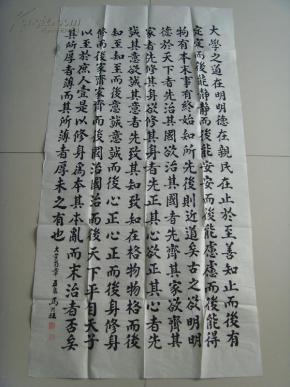 大學之道在明明德在親民在止於至善知止而後有
定定而後能靜靜而後能安安而後能慮慮而後能得
物有本末事有終始知所先後則近道矣古之欲明明
德於天下者先治其國欲治其國者先齊其家欲齊其
家者先修其身欲修其身者先正其心欲正其心者先
誠其意欲誠其意者先致其知致知在格物物格而後
知至知至而後意誠意誠而後心正心正而後身修身
修而後家齊家齊而後國治國治而後天下平自天子
以至於庶人壹是以修身為本其本亂而末治者否矣
其所厚者薄而其所薄者厚未之有也